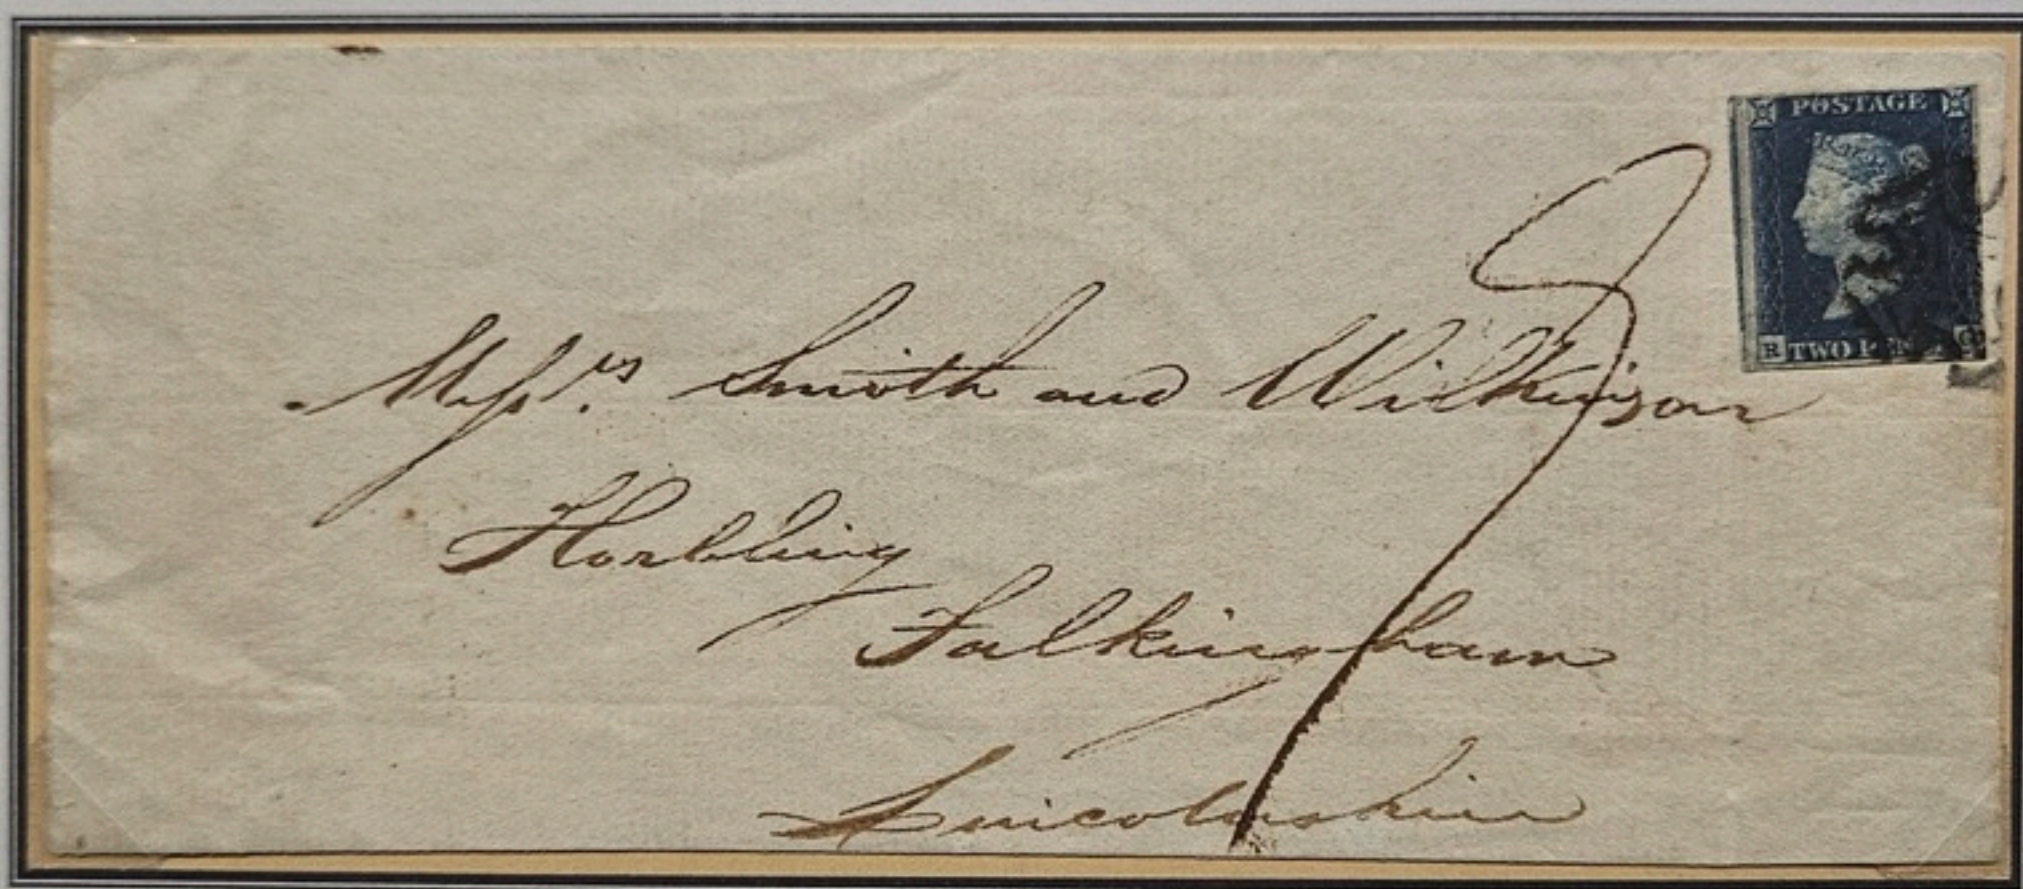 POSTAGE
R TWO PEN
Messrs. Smith and Wilkinson
Horbling
Falkingham
Lincolnshire